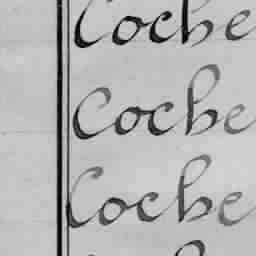 Coche
Coche
Coche